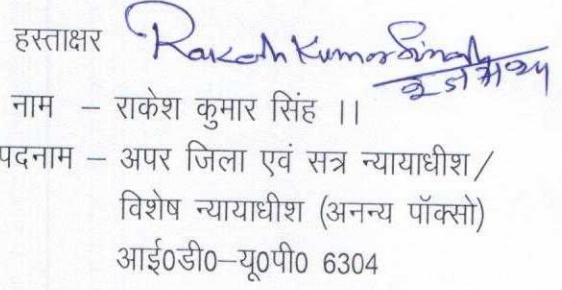 हस्ताक्षर Rakesh Kumar Singh
नाम – राकेश कुमार सिंह ।।
पदनाम – अपर जिला एवं सत्र न्यायाधीश/
विशेष न्यायाधीश (अनन्य पॉक्सो)
आई0डी0–यू0पी0 6304